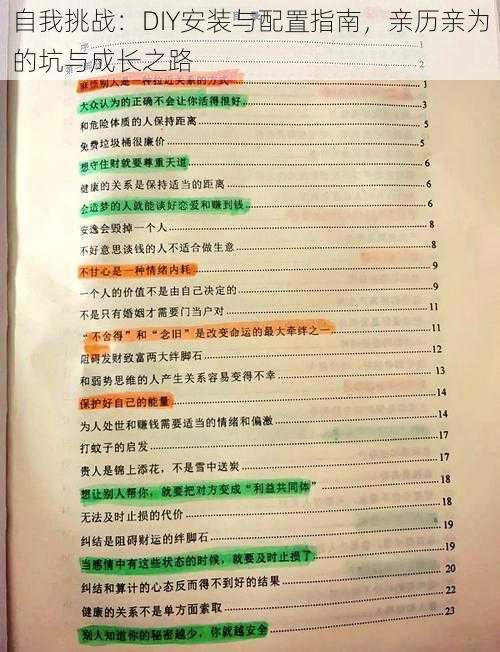 自我挑战：DIY安装与配置指南，亲历亲为
的坑与成长之路
序 1
麻烦别人是一种拉近关系的方式 3
大众认为的正确不会让你活得很好 3
和危险体质的人保持距离 5
免费垃圾桶很廉价 5
想守住财就要尊重天道 6
健康的关系是保持适当的距离 6
会造梦的人就能谈好恋爱和赚到钱 6
安逸会毁掉一个人 8
不好意思谈钱的人不适合做生意 8
不甘心是一种情绪内耗 9
一个人的价值不是由自己决定的 9
不是只有婚姻才需要门当户对 11
“不舍得”和“念旧”是改变命运的最大牵绊之一 11
阻碍发财致富两大绊脚石 12
和弱势思维的人产生关系容易变得不幸 13
保护好自己的能量 14
为人处世和赚钱需要适当的情绪和偏激 14
打蚊子的启发 17
贵人是锦上添花，不是雪中送炭 16
想让别人帮你，就要把对方变成“利益共同体” 18
无法及时止损的代价 18
纠结是阻碍财运的绊脚石 19
当感情中有这些状态的时候，就要及时止损了 19
纠结和算计的心态反而得不到好的结果 20
健康的关系不是单方面索取 22
别人知道你的秘密越少，你就越安全 23